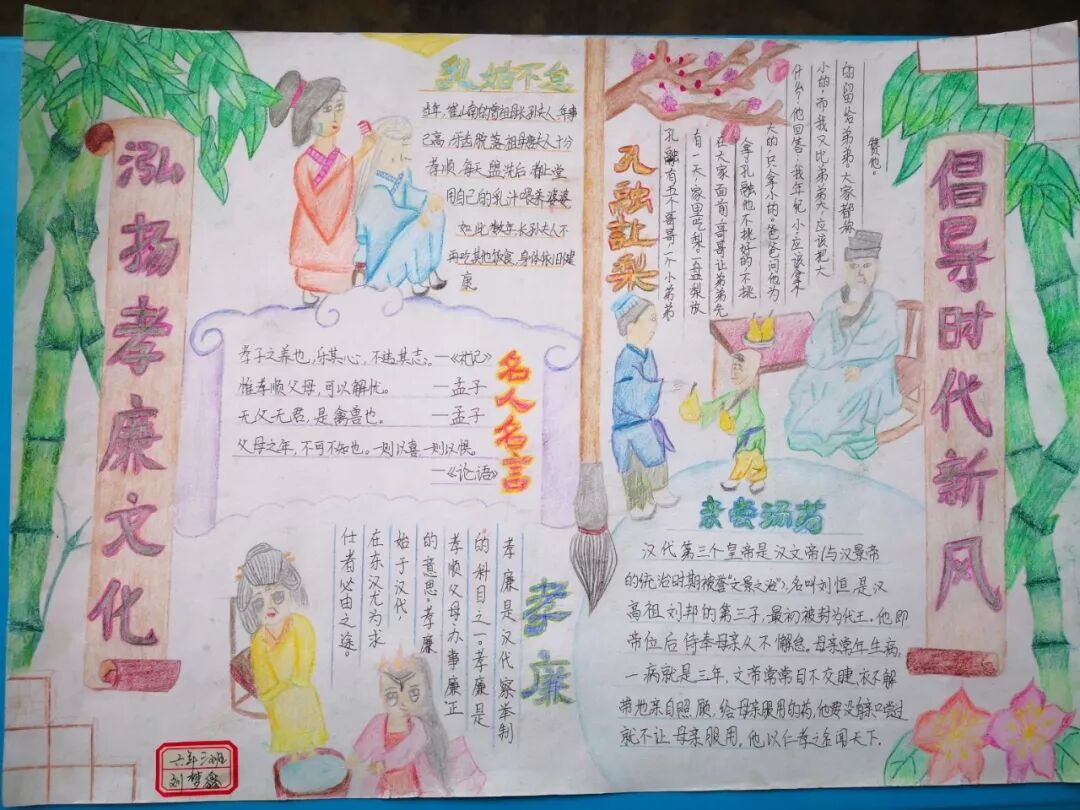 泓扬孝廉文化
乳姑不怠
当年,崔山南的曾祖母长孙夫人,年事
已高,牙齿脱落,祖母唐夫人十分
孝顺,每天盥洗后,都上堂
用自己的乳汁喂养婆婆
如此数年,长孙夫人不
再吃其他饭食,身体依旧健
康
名人名言
孝子之养也,乐其心,不违其志。—《礼记》
惟孝顺父母,可以解忧。 —孟子
无父无君,是禽兽也。 —孟子
父母之年,不可不知也。一则以喜,一则以惧。
—《论语》
孝廉
孝廉是汉代察举制
的科目之一。孝廉是
孝顺父母办事廉正
的意思,孝廉
始于汉代,
在东汉尤为求
仕者必由之途。
刘梦
孔融让梨
孔融有五个哥哥,一个小弟弟
有一天家里吃梨。一盘梨放
在大家面前,哥哥让弟弟先
拿。孔融他不挑好的,不挑
大的,只拿小的。爸爸问他为
什么,他回答:我年纪小,应该拿个
小的,而我又比弟弟大,应该把大
的留给弟弟。大家都称
赞他。
亲尝汤药
汉代第三个皇帝是汉文帝(与汉景帝
的统治时期被誉“文景之治”),名叫刘恒,是汉
高祖刘邦的第三子,最初被封为代王。他即
帝位后,侍奉母亲从不懈怠。母亲常年生病,
一病就是三年,文帝常常目不交睫,衣不解
带地亲自照顾,给母亲服用的药,他要没亲口尝过
就不让母亲服用,他以仁孝之名闻天下.
倡导时代新风